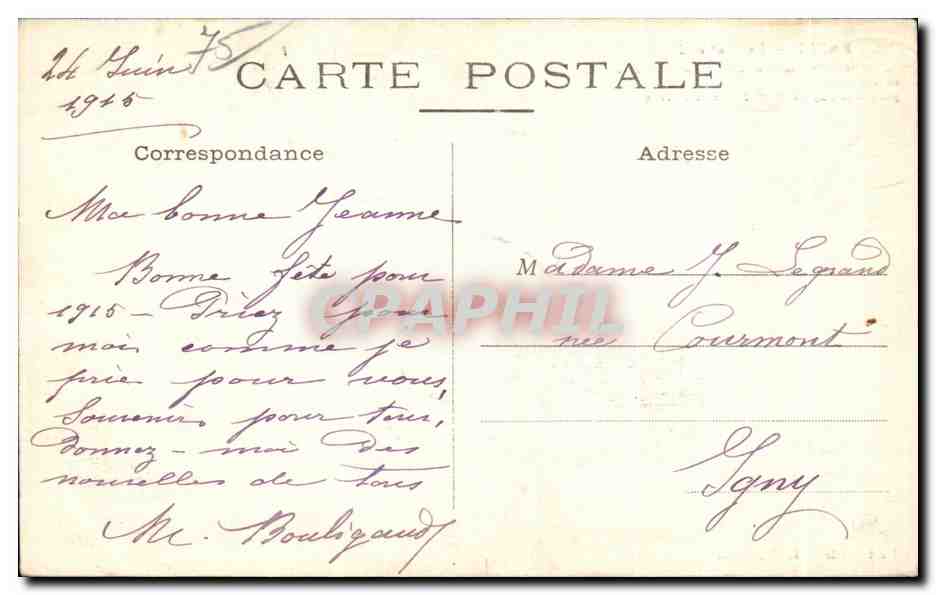 24 Juin
1915
75
CARTE POSTALE
Correspondance
Ma bonne Jeanne
Bonne fête pour
1915 - Priez pour
moi comme je
prie pour vous,
Souvenirs pour tous,
Donnez-moi des
nouvelles de tous
M. Bouligaud
Adresse
Madame J. Legrand
née Courmont
Igny
CPAPHIL